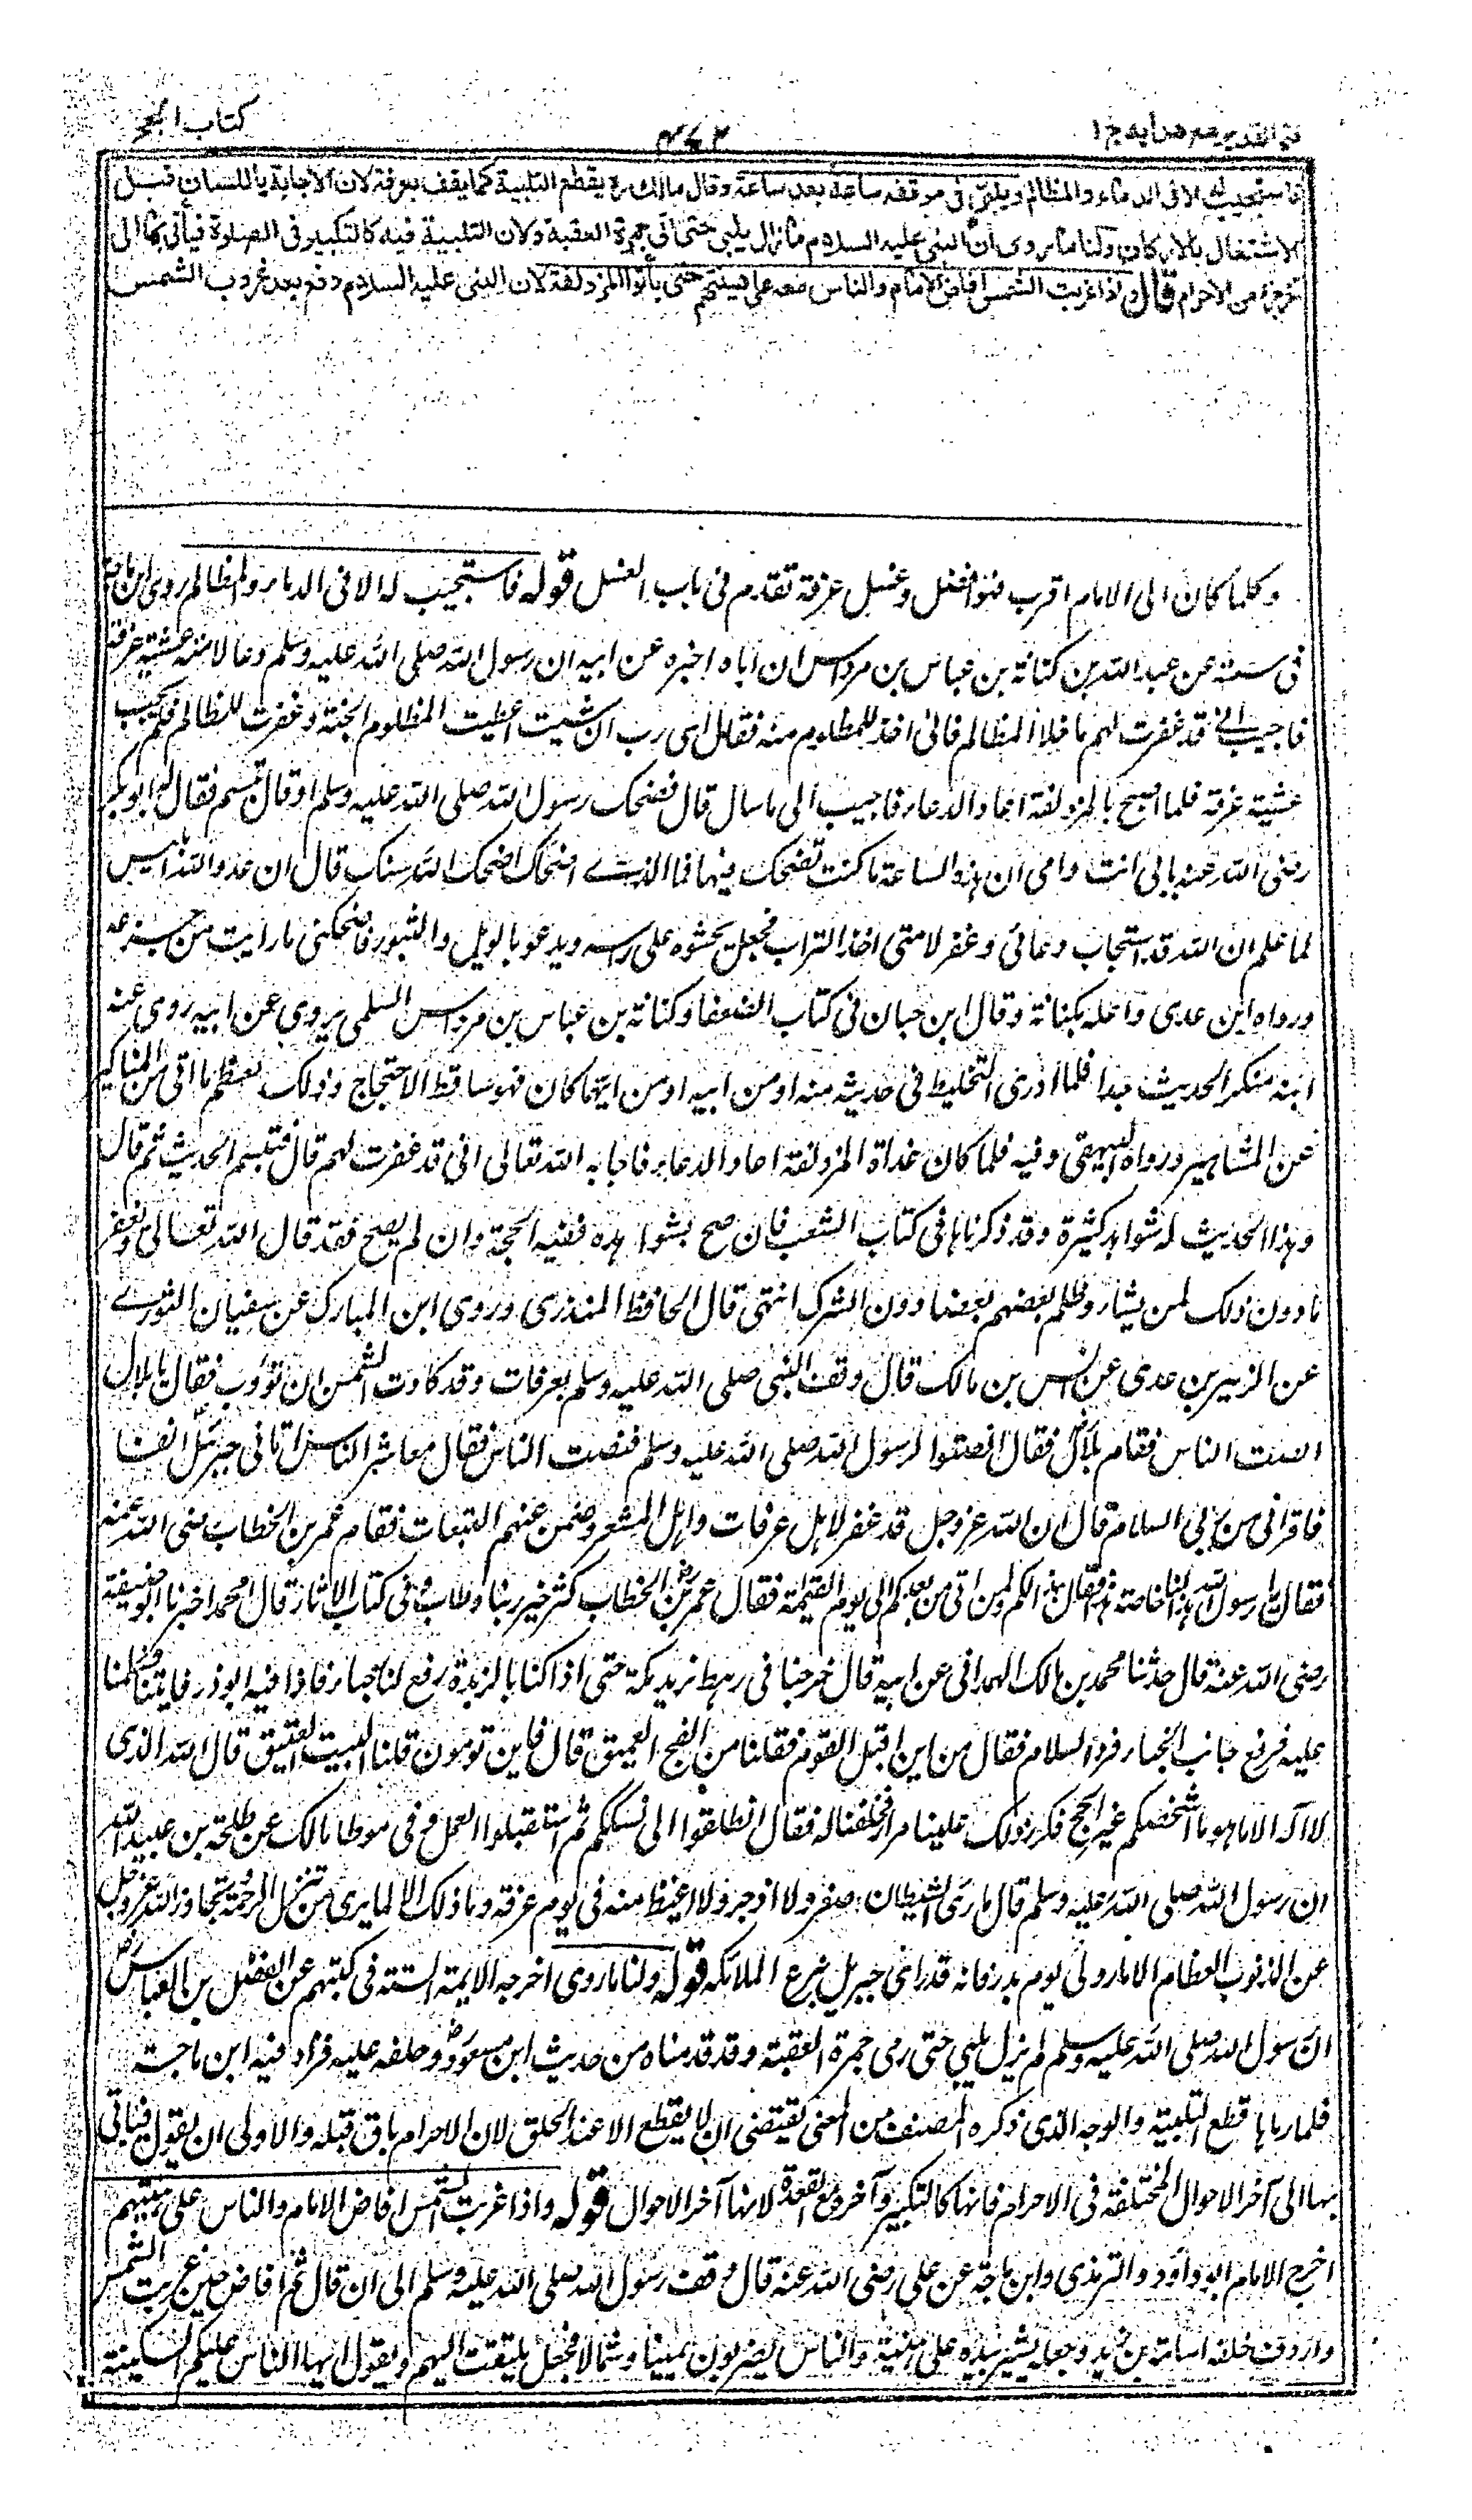 فتح القدير مع هدايه ج ١
٣٧٢
كتاب الحج
فاستجيب له الا في الدماء والمظالم ويلبي في موقفه ساعة بعد ساعة وقال مالك رح يقطع التلبية كما يقف بعرفة لان الاجابة باللسان قبل
الاشتغال بالاركان ولنا ما روى ان النبي عليه السلام ما زال يلبي حتى اتى جمرة العقبة ولان التلبية فيه كالتكبير في الصلوة فيأتي بها الى
اخر جزء من الاحرام قال واذا غربت الشمس افاض الامام والناس معه على هينتهم حتى يأتوا المزدلفة لان النبي عليه السلام دفع بعد غروب الشمس
وكلما كان الى الامام اقرب فهو افضل وغسل عرفة تقدم في باب الغسل قوله فاستجيب له الا في الدماء والمظالم روى ابن ماجة
في سننه عن عبد الله بن كنانة بن عباس بن مرداس ان اباه اخبره عن ابيه ان رسول الله صلى الله عليه وسلم دعا لامته عشية عرفة
فاجيب اني قد غفرت لهم ما خلا المظالم فاني اخذ للمظلوم منه فقال اى رب ان شئت اعطيت المظلوم الجنة وغفرت للظالم فلم يجب
عشية عرفة فلما اصبح بالمزدلفة اعاد الدعاء فاجيب الى ما سال قال فضحك رسول الله صلى الله عليه وسلم او قال تبسم فقال له ابو بكر
رضى الله عنه بابى انت وامى ان هذه الساعة ما كنت تضحك فيها فما الذى اضحك اضحك الله سنك قال ان عدو الله ابليس
لما علم ان الله قد استجاب دعائى وغفر لامتى اخذ التراب فجعل يحثوه على راسه ويدعو بالويل والثبور فاضحكنى ما رايت من جزعه
ورواه ابن عدى واعله بكنانة وقال ابن حبان فى كتاب الضعفاء كنانة بن عباس بن مرداس السلمى يروى عن ابيه روى عنه
ابنه منكر الحديث جدا فلا ادرى التخليط فى حديثه منه او من ابيه او من ايهما كان فهو ساقط الاحتجاج وذلك لعظم ما اتى من المناكير
عن المشاهير ورواه البيهقى وفيه فلما كان غداة المزدلفة اعاد الدعاء فاجابه الله تعالى انى قد غفرت لهم قال فتبسم الحديث ثم قال
وهذا الحديث له شواهد كثيرة وقد ذكرناها فى كتاب الشعب فان صح بشواهده ففيه الحجة وان لم يصح فقد قال الله تعالى ويغفر
ما دون ذلك لمن يشاء وظلم بعضهم بعضا دون الشرك انتهى قال الحافظ المنذرى وروى ابن المبارك عن سفيان الثورى
عن الزبير بن عدى عن انس بن مالك قال وقف النبى صلى الله عليه وسلم بعرفات وقد كادت الشمس ان تؤوب فقال يا بلال
انصت الناس فقام بلال فقال انصتوا لرسول الله صلى الله عليه وسلم فنصت الناس فقال معاشر الناس اتانى جبرئيل انفا
فاقرانى من ربى السلام قال ان الله عز وجل قد غفر لاهل عرفات واهل المشعر وضمن عنهم التبعات فقام عمر بن الخطاب رضى الله عنه
فقال يا رسول الله هذا لنا خاصة فقال هذا لكم ولمن اتى من بعدكم الى يوم القيمة فقال عمر بن الخطاب كثر خير ربنا وطاب وفى كتاب الاثار قال محمد اخبرنا ابو حنيفة
رضى الله عنه قال حدثنا محمد بن مالك الهمدانى عن ابيه قال خرجنا فى رهط نريد مكة حتى اذا كنا بالربذة رفع لنا خباء فاذا فيه ابو ذر فاتينا فسلمنا
عليه فرفع جانب الخباء فرد السلام فقال من اين اقبل القوم فقلنا من الفج العميق قال فاين تومون قلنا البيت العتيق قال الله الذى
لا اله الا هو ما اشخصكم غير الحج فكرر ذلك علينا مرارا فحلفنا له فقال انطلقوا الى نسككم ثم استقبلوا العمل وفى موطا مالك عن طلحة بن عبيد الله
ان رسول الله صلى الله عليه وسلم قال ما رئى الشيطان اصغر ولا ادحر ولا اغيظ منه فى يوم عرفة وما ذلك الا لما يرى من تنزل الرحمة وتجاوز الله عز وجل
عن الذنوب العظام الا ما روئى يوم بدر فانه قد راى جبريل يزع الملائكة قوله ولنا ما روى اخرجه الايمة الستة فى كتبهم عن الفضل بن العباس
ان رسول الله صلى الله عليه وسلم لم يزل يلبى حتى رمى جمرة العقبة وقد قدمناه من حديث ابن مسعود وحلفه عليه فزاد فيه ابن ماجة
فلما رماها قطع التلبية والوجه الذى ذكره المصنف من المعنى يقتضى ان لا يقطع الا عند الحلق لان الاحرام باق قبله والاولى ان يقول فياتى
بها الى آخر الاحوال المختلفة فى الاحرام فانها كالتكبير وآخره مع القعدة لانها آخر الاحوال قوله واذا غربت الشمس افاض الامام والناس على هينتهم
اخرج الامام ابو داود والترمذى وابن ماجة عن على رضى الله عنه قال وقف رسول الله صلى الله عليه وسلم الى ان قال ثم افاض حين غربت الشمس
واردف خلفه اسامة بن زيد وجعل يشير بيده على هينته والناس يضربون يمينا وشمالا فجعل يلتفت اليهم ويقول ايها الناس عليكم السكينة